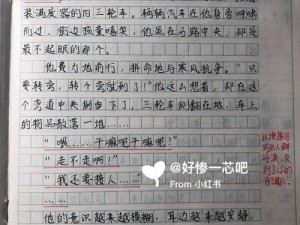 装满废品的旧三轮车。辆辆汽车在他身旁呼啸
而过，街边孩童嘻笑，他虽在马路中央，却是
最不起眼的那个。
他费力地前行，拼命地与寒风抗争。"只
要转弯，转个弯就到了！"他这么想着，却在这
个弯道中央倒当下了，三轮车侧翻在地，车上
的物品散落一地……
"喂……干嘛呢干嘛呢？"
"走不走啊！"
"我还要接人……"
@好惨一芯吧
From 小红书
他的意识越来越模糊，耳边越来越安静，